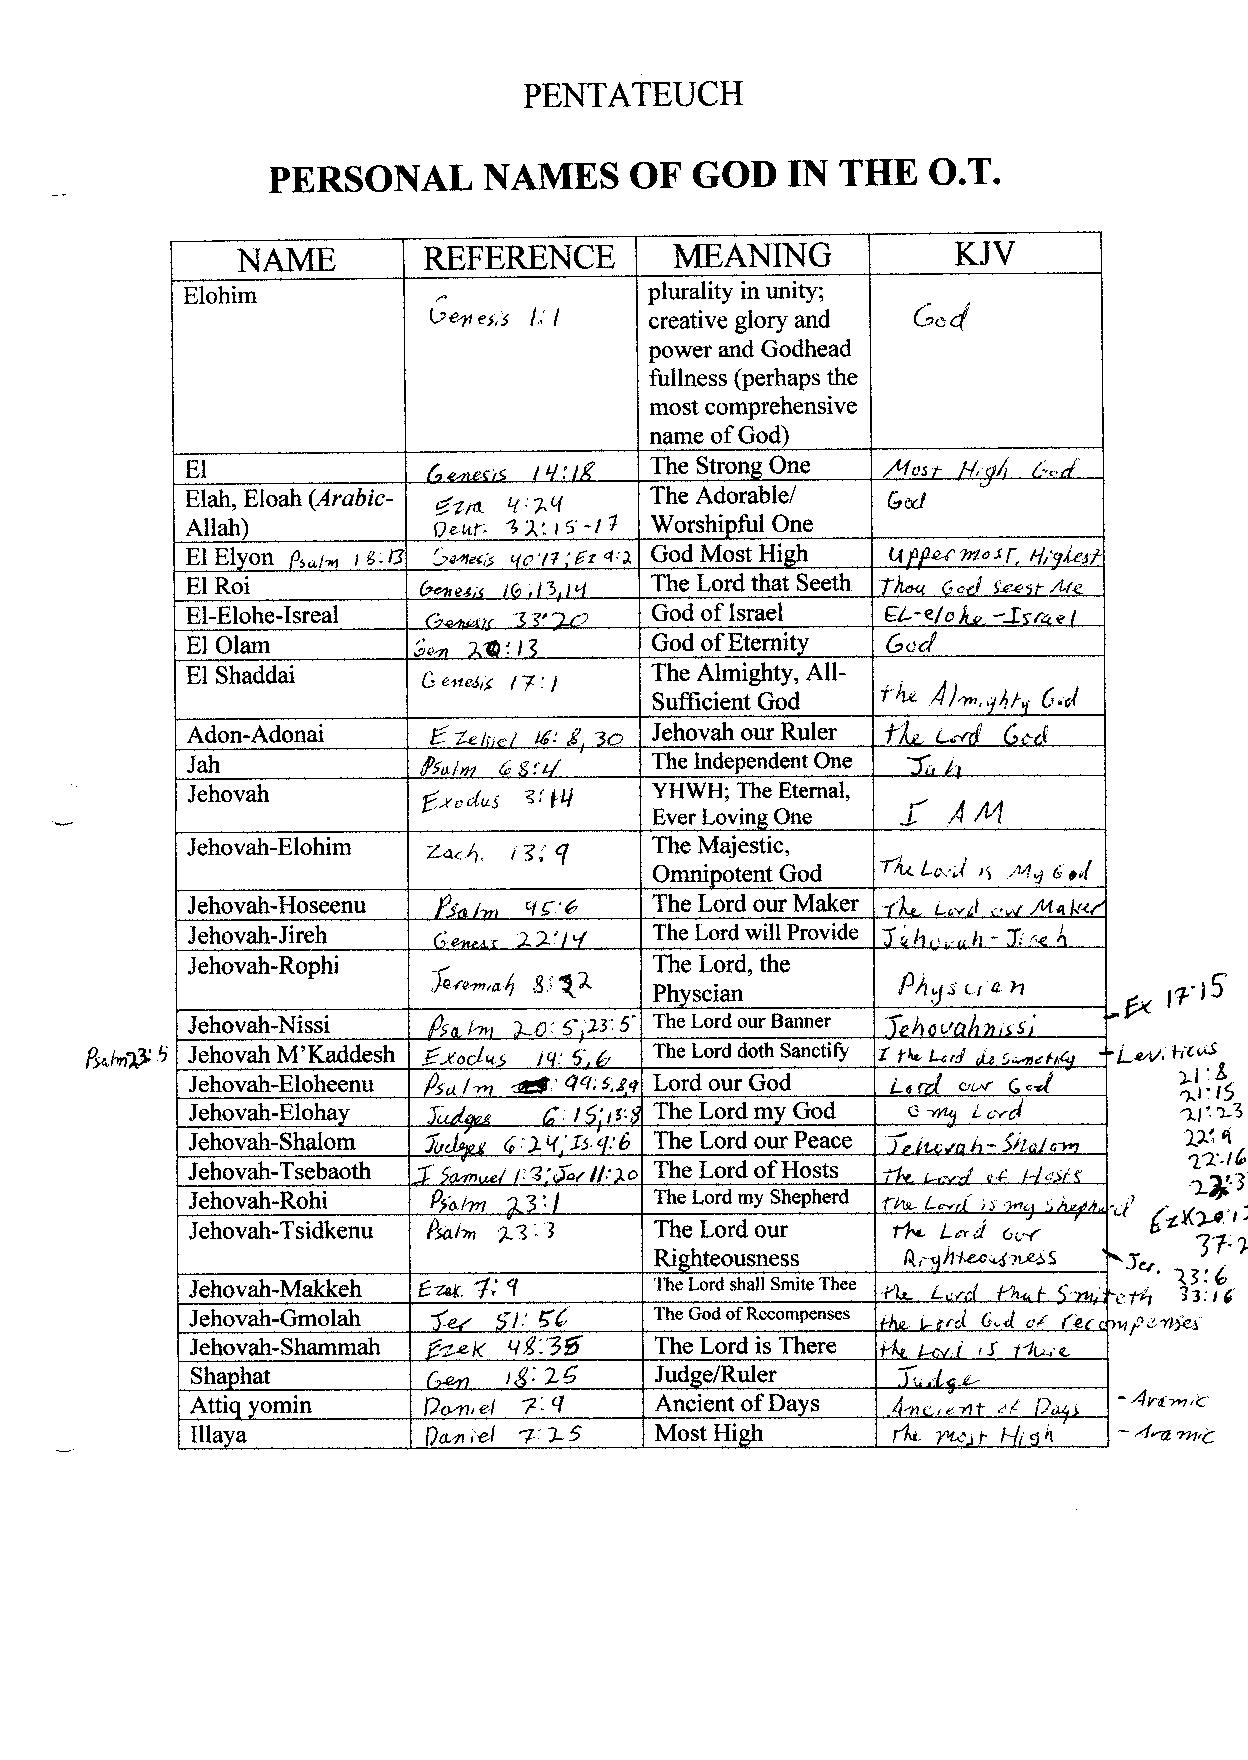 PENTATEUCH
PERSONAL NAMES OF GOD IN THE O.T.
NAME REFERENCE MEANING KJV
Elohim Genesis 1:1 plurality in unity; God
creative glory and
power and Godhead
fullness (perhaps the
most comprehensive
name of God)
El Genesis 14:18 The Strong One Most High God
Elah, Eloah (Arabic- Ezra 4:24 The Adorable/ God
Allah) Deut. 32:15-17 Worshipful One
El Elyon Psalm 18:13 Genesis 40:17; Ez 9:2 God Most High Uppermost, Highest
El Roi Genesis 16:13,14 The Lord that Seeth Thou God Seest Me
El-Elohe-Isreal Genesis 33:20 God of Israel EL-elohe-Israel
El Olam Gen 20:13 God of Eternity God
El Shaddai Genesis 17:1 The Almighty, All- the Almighty God
Sufficient God
Adon-Adonai Ezekiel 16:8,30 Jehovah our Ruler the Lord God
Jah Psalm 68:4 The Independent One Jah
Jehovah Exodus 3:14 YHWH; The Eternal, I AM
Ever Loving One
Jehovah-Elohim Zach. 13:9 The Majestic, The Lord is My God
Omnipotent God
Jehovah-Hoseenu Psalm 95:6 The Lord our Maker The Lord our Maker
Jehovah-Jireh Genesis 22:14 The Lord will Provide Jehovah-Jireh
Jehovah-Rophi Jeremiah 8:22 The Lord, the Physcian
Physcian
Ex 17:15
Jehovah-Nissi Psalm 20:5;23:5 The Lord our Banner Jehovahnissi
Psalm23:5 Jehovah M'Kaddesh Exodus 19:5,6 The Lord doth Sanctify I the Lord do Sanctify Leviticus
21:8
Jehovah-Eloheenu Psalm 99:5,8,9 Lord our God Lord our God 21:15
Jehovah-Elohay Judges 6:15;13:8 The Lord my God O my Lord 21:23
Jehovah-Shalom Judges 6:24; Is. 9:6 The Lord our Peace Jehovah-Shalom 22:9
22:16
Jehovah-Tsebaoth I Samuel 1:3; Jer 11:20 The Lord of Hosts The Lord of Hosts
Jehovah-Rohi Psalm 23:1 The Lord my Shepherd the Lord is my Shepherd
Jehovah-Tsidkenu Psalm 23:3 The Lord our The Lord our
Righteousness Righteousness Jer. 23:6
33:16
Jehovah-Makkeh Ezek. 7:9 The Lord shall Smite Thee the Lord that Smiteth
Jehovah-Gmolah Jer 51:56 The God of Recompenses the Lord God of recompenses
Jehovah-Shammah Ezek 48:35 The Lord is There the Lord is there
Shaphat Gen 18:25 Judge/Ruler Judge
Attiq yomin Daniel 7:9 Ancient of Days Ancient of Days - Aramic
Illaya Daniel 7:25 Most High the most High - Aramic